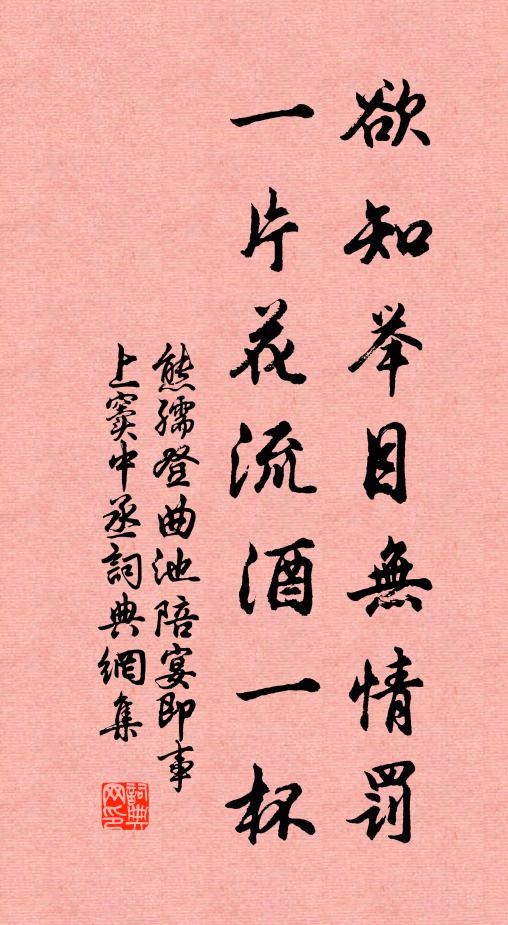 欲知举目無情罰
一片花流酒一杯
熊孺登曲池陪宴即事
上窦中丞詞典網集
詞典网印